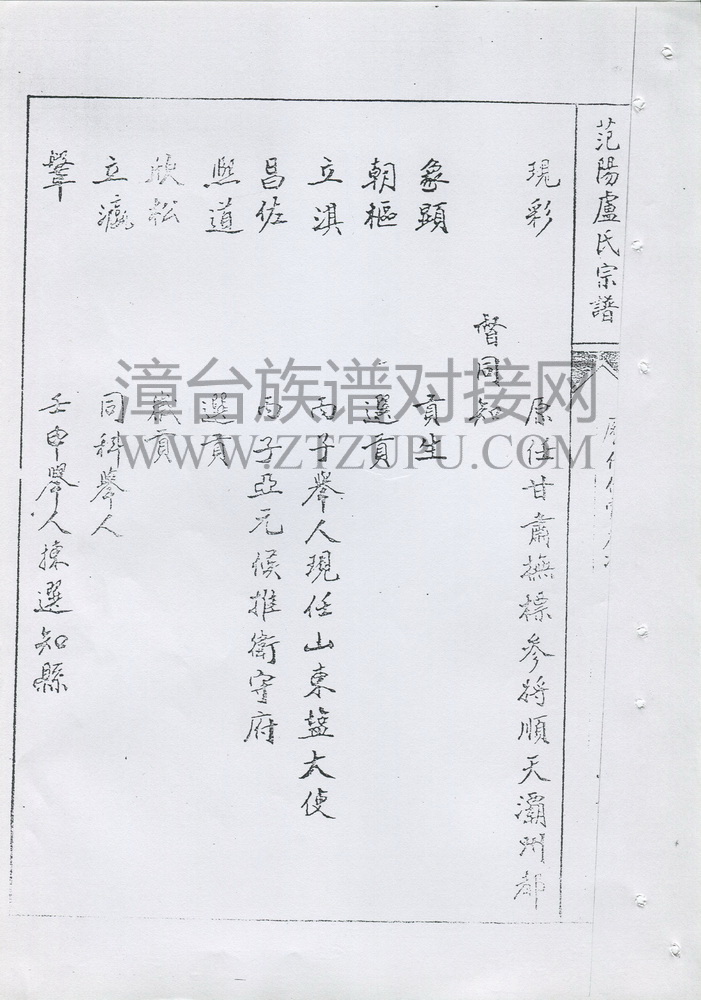 范陽盧氏宗譜
現彩 原任甘肅撫標參將順天灞州都
督同知
象顯 貢生
朝樞 選貢
立淇 丙子舉人現任山東鹽大使
昌佐 丙子亞元候推衛守府
熙道 選貢
松 歲貢
立瀛 同科舉人
肇 壬申舉人揀選知縣
漳台族谱对接网
WWW.ZTZUPU.COM